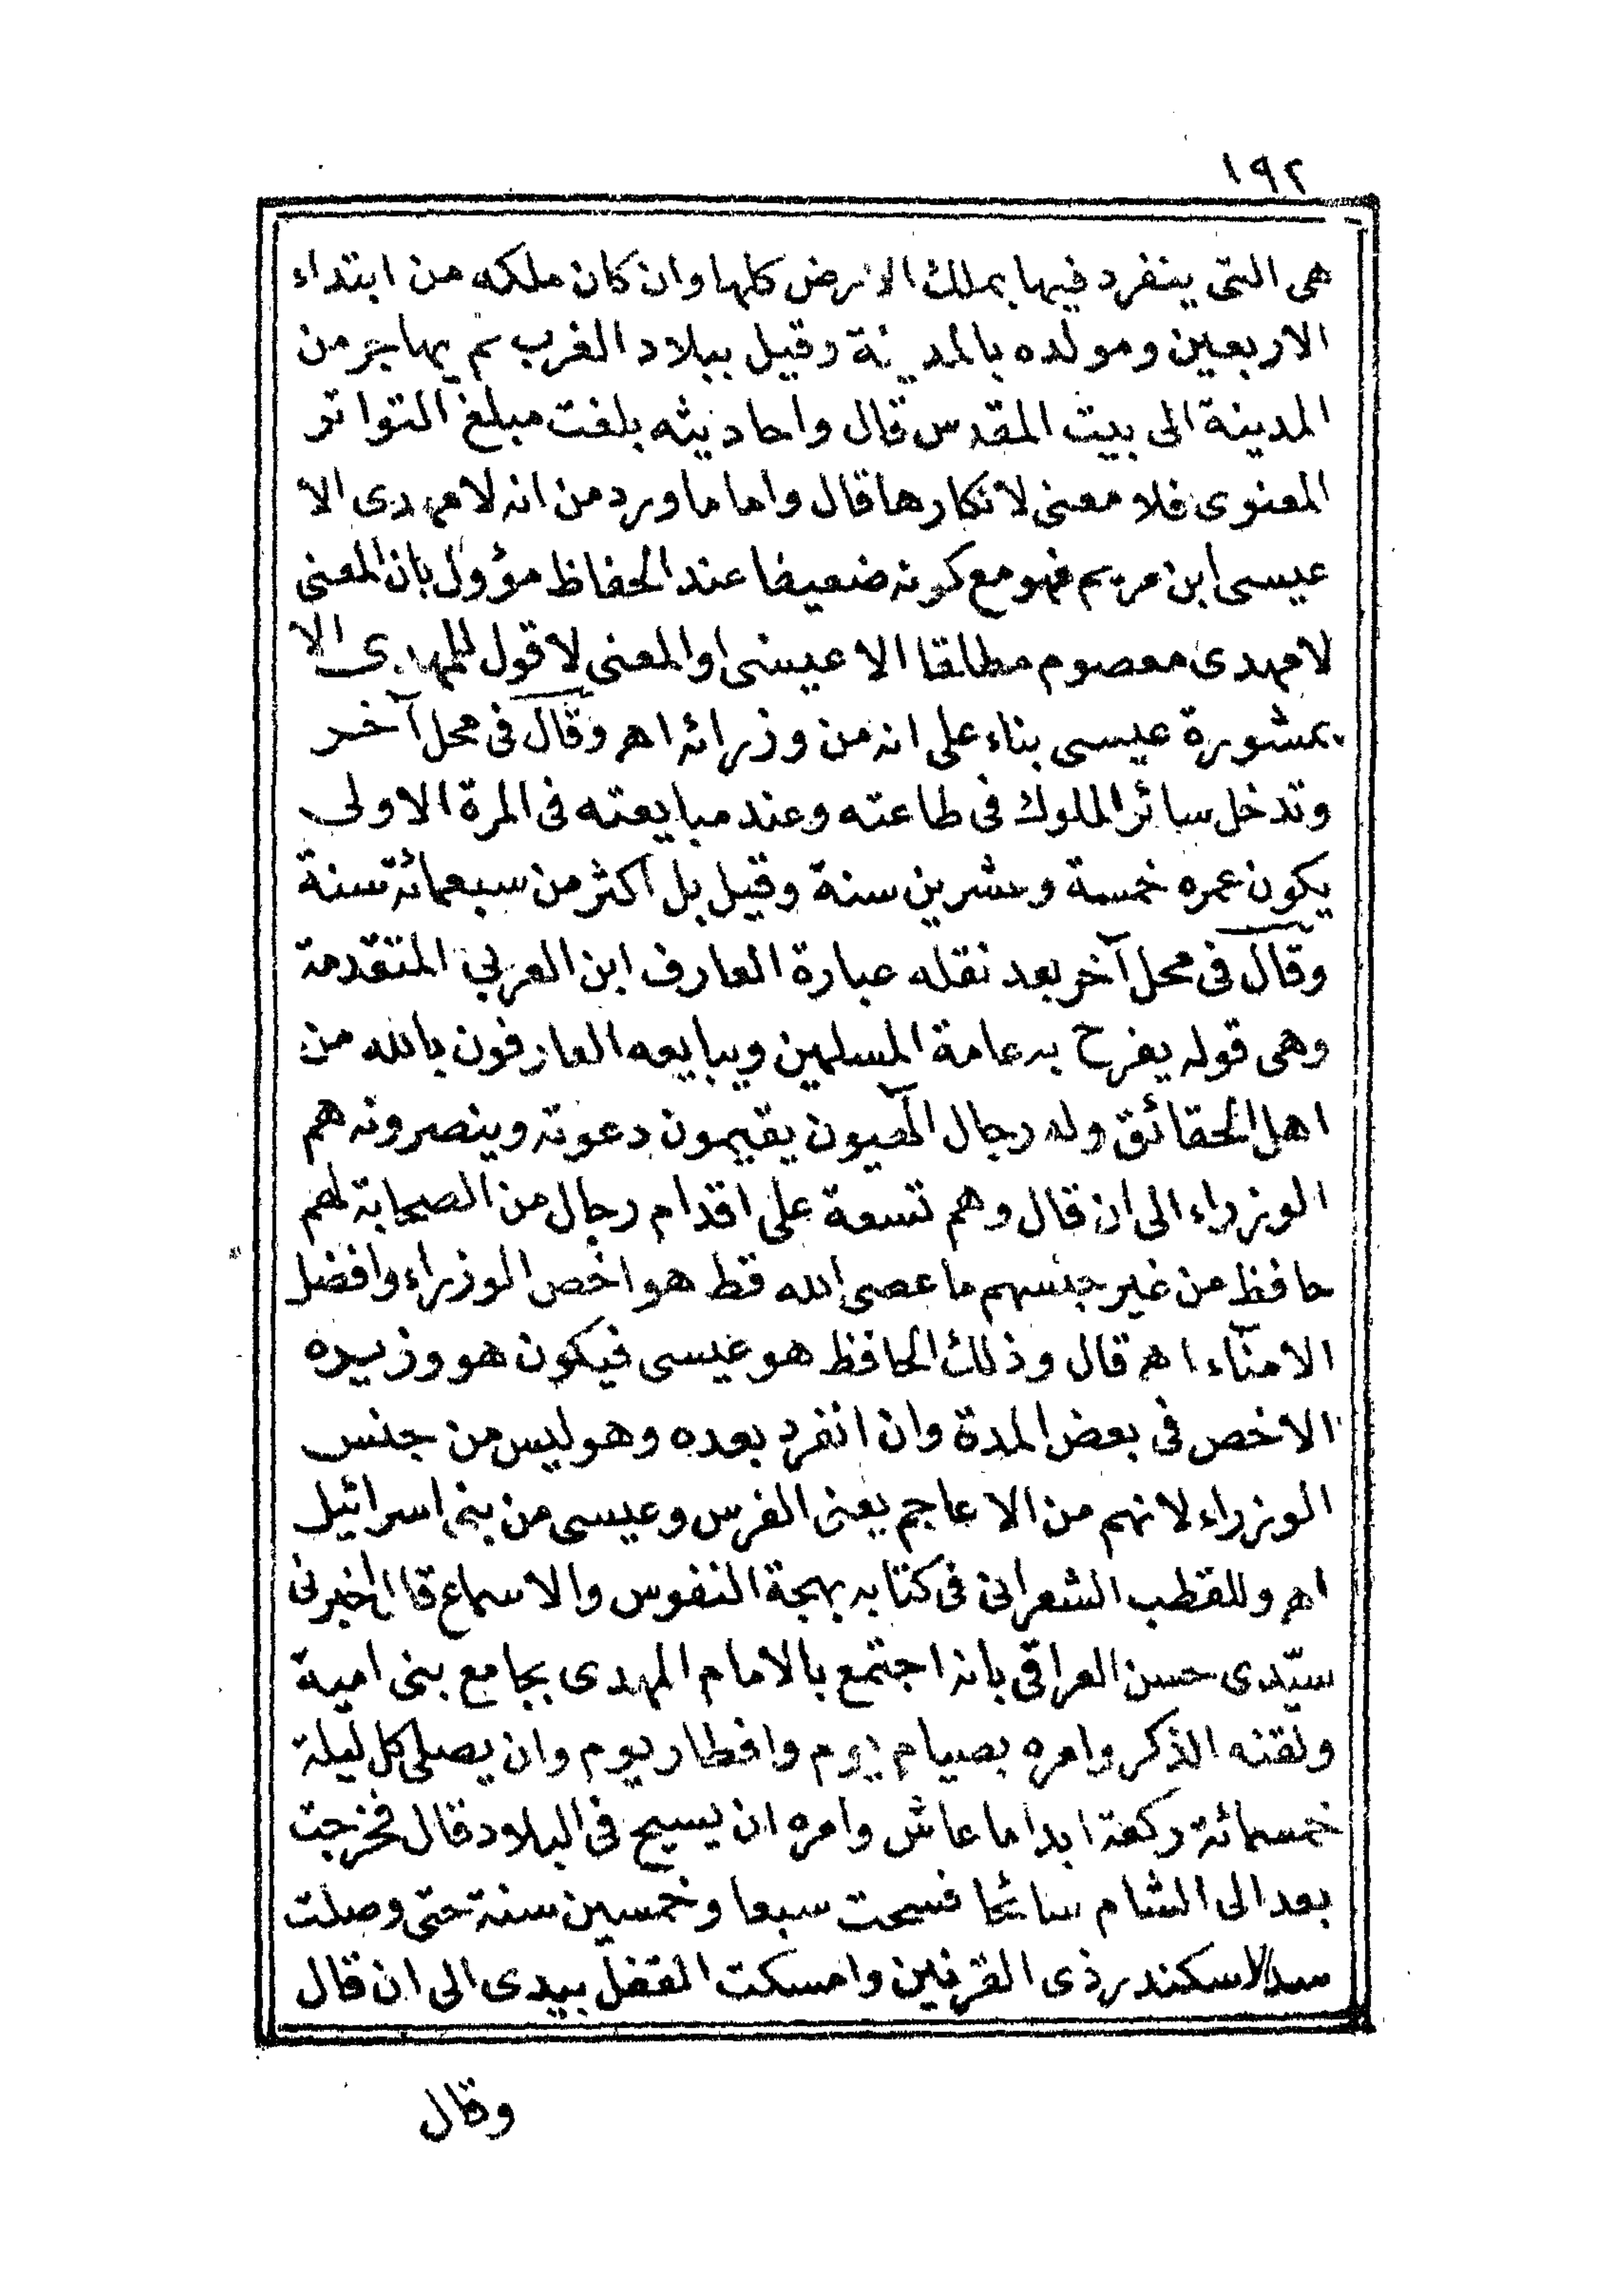 ١٩٢
هى التى ينفرد فيها بملك الارض كلها وان كان ملكه من ابتداء
الاربعين ومولده بالمدينة وقيل ببلاد الغرب ثم يهاجر من
المدينة الى بيت المقدس قال واحاديثه بلغت مبلغ التواتر
المعنوى فلا معنى لانكارها قال واما ما ورد من انه لا مهدى الا
عيسى ابن مريم فهو مع كونه ضعيفا عند الحفاظ مؤول بان المعنى
لا مهدى معصوم مطلقا الا عيسى او المعنى لا قول للمهدى الا
بمشورة عيسى بناء على انه من وزرائه اهـ وقال فى محل آخر
وتدخل سائر الملوك فى طاعته وعند مبايعته فى المرة الاولى
يكون عمره خمسة وعشرين سنة وقيل بل اكثر من سبعمائة سنة
وقال فى محل آخر بعد نقله عبارة العارف ابن العربي المتقدمة
وهى قوله يفرح به عامة المسلمين ويبايعه العارفون بالله من
اهل الحقائق وله رجال آلهيون يقيمون دعوته وينصرونه هم
الوزراء الى ان قال وهم تسعة على اقدام رجال من الصحابة لهم
حافظ من غير جنسهم ما عصى الله قط هو اخص الوزراء وافضل
الامناء اهـ قال وذلك الحافظ هو عيسى فيكون هو وزيره
الاخص فى بعض المدة وان انفرد بعده وهو ليس من جنس
الوزراء لانهم من الاعاجم يعنى الفرس وعيسى من بنى اسرائيل
اهـ وللقطب الشعرانى فى كتابه بهجة النفوس والاسماع قال اخبرنى
سيّدى حسن العراقى بانه اجتمع بالامام المهدى بجامع بنى امية
ولقنه الذكر وامره بصيام يوم وافطار يوم وان يصلى كل ليلة
خمسمائة ركعة ابدا ما عاش وامره ان يسيح فى البلاد قال فخرجت
بعد الى الشام سائحا فسحت سبعا وخمسين سنة حتى وصلت
سد الاسكندر ذى القرنين وامسكت القفل بيدى الى ان قال
وقال